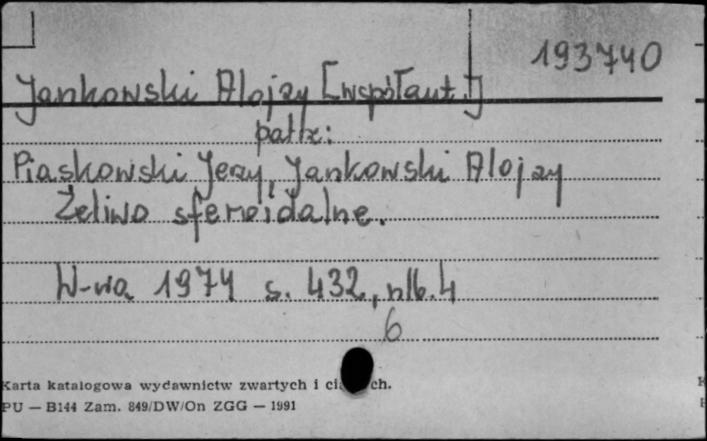 193740
Jankowski Alojzy [współaut.]
patrz:
Piaskowski Jerzy, Jankowski Alojzy
Żeliwo sferoidalne.
W-wa 1974 s. 432, nlb. 4
6
Karta katalogowa wydawnictw zwartych i ch.
PU — B144 Zam. 849/DW/On ZGG — 1991